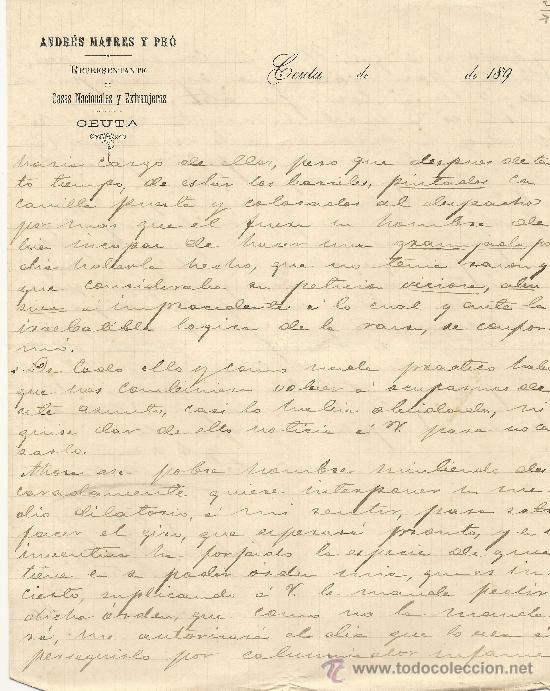 ANDRÉS MATRES Y PRÓ
REPRESENTANTE
DE
Casas Nacionales y Extranjeras
CEUTA
Ceuta de de 189
hacia cargo de ellos, pero que despues de tan
to tiempo, de estar los barriles, pintados, ca
nilla puesta y colocados al despacho
por mas que el fuese un hombre de
bia incapaz de hacer una
dia haberla hecho, que no tenia razon y
que consideraba su peticion viciosa, abu
siva é improcedente á lo cual y ante la
irrebatible logica de la razon, se confor
mó.
De todo ello y como nada practico habia
que nos combiniera volver á ocuparnos de
este asunto, casi lo habia olvidado, ni
quise dar de ello noticia á V. para no can
sarlo.
Ahora ese pobre hombre mintiendo des
caradamente quiere interponer un me
dio dilatorio, á mi sentir, para satis
facer el giro, que esperase pronto, y al
ha forjado la especie de que
tiene en su poder orden mia, que es in
cierto, suplicando á V. le mande pedir
dicha orden, que como no la manda
rá, me autorizará el dia que lo vea á
perseguirlo por calumniador infame
www.todocoleccion.net